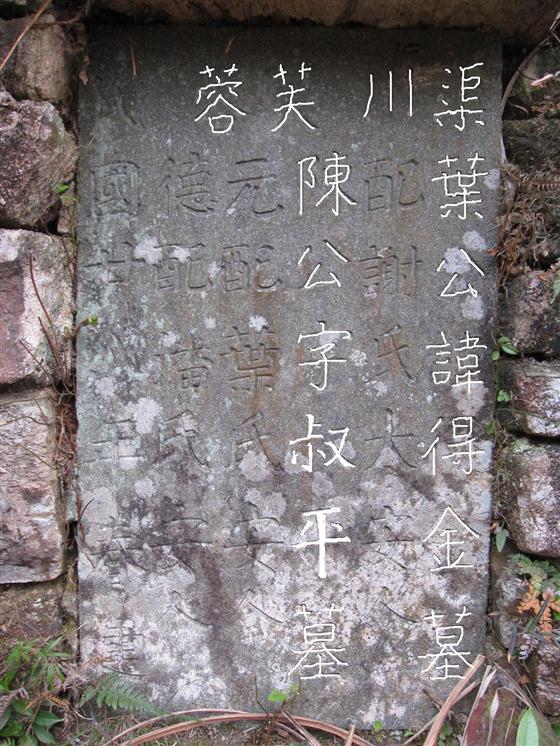 渠川
芙蓉
葉公諱得金墓
配謝氏太安人
陳公字叔平墓
元配葉氏安人
德配潘氏安人
民國廿年建